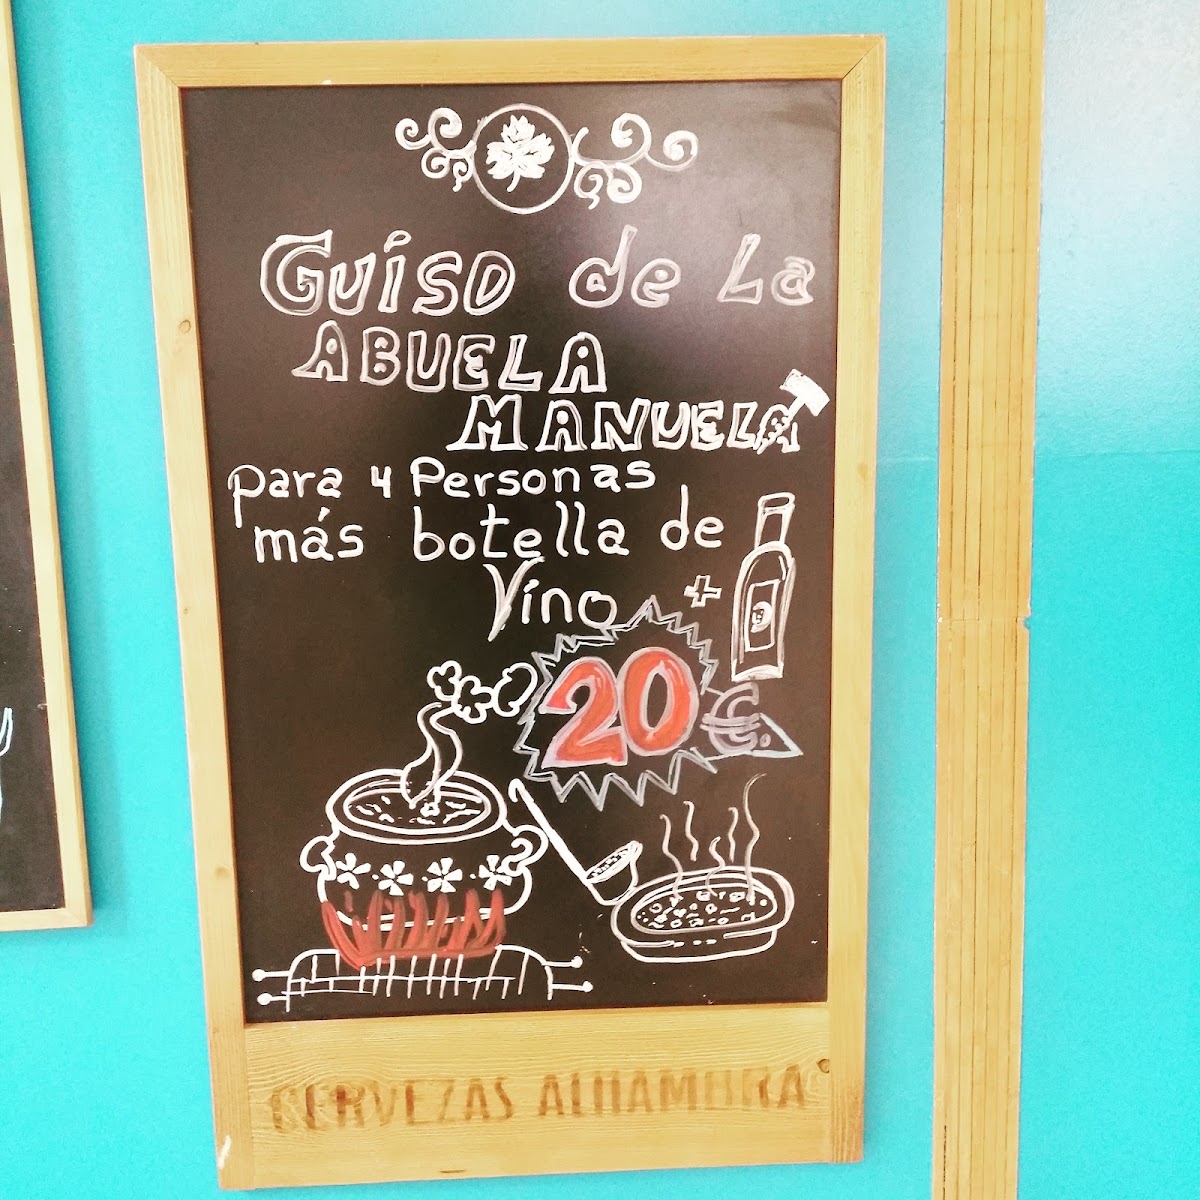 Guiso de La
ABUELA
MANUELA
para 4 Personas
más botella de
Vino +
20 €.
CERVEZAS ALHAMBRA